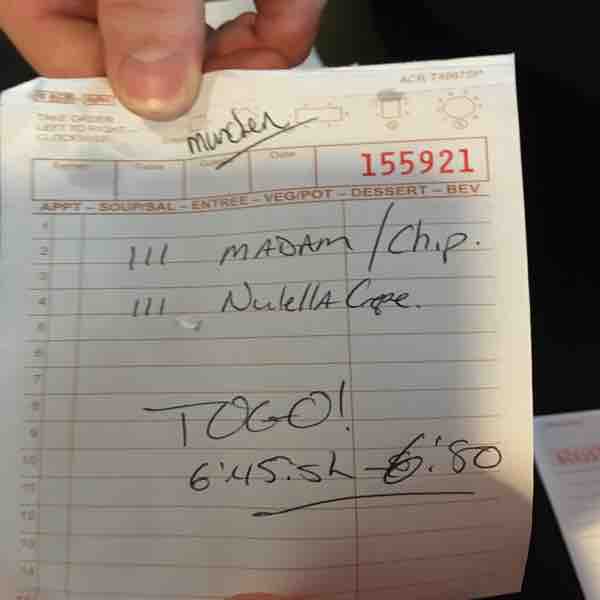 ACR T4997SP
TAKE ORDER
LEFT TO RIGHT
CLOCKWISE
Table
Date
155921
APPT – SOUP/SAL – ENTREE – VEG/POT – DESSERT – BEV
1
2 111 MADAM / Chip.
3
4 111 Nutella Crpe.
5
6
7
8 TOGO!
9
10 6:45.sh - 6:50
11
12
13
14